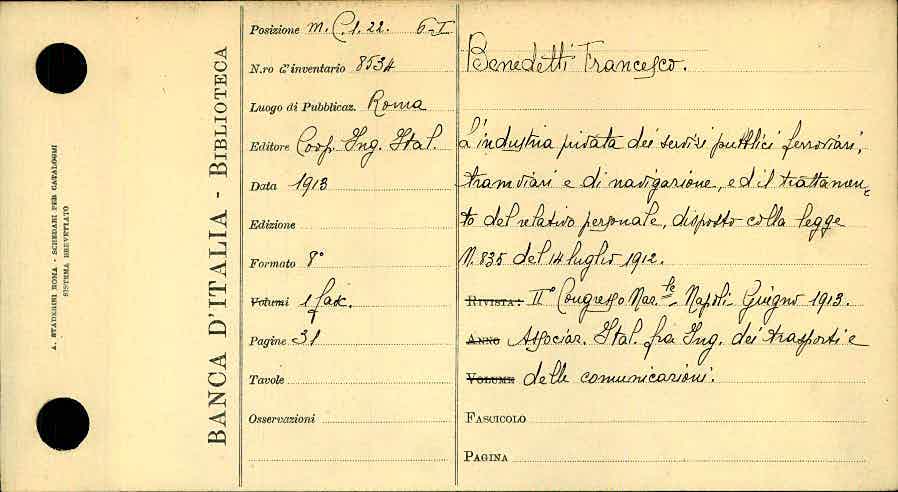 A. STADERINI ROMA - SCHEDARI PER CATALOGHI
SISTEMA BREVETTATO
BANCA D'ITALIA - BIBLIOTECA
Posizione m. C. 1. 22. 6-I
N.ro d'inventario 8534
Luogo di Pubblicaz. Roma
Editore Coop. Ing. Ital.
Data 1913
Edizione
Formato 8°
Volumi 1 fasc.
Pagine 31
Tavole
Osservazioni
Benedetti Francesco.
L'industria privata dei servizi pubblici ferroviari,
tramviari e di navigazione, ed il trattamen-
to del relativo personale, disposto colla legge
N. 835 del 14 luglio 1912.
RIVISTA: II° Congresso Naz.le - Napoli - Giugno 1913.
ANNO Associaz. Ital. fra Ing. dei trasporti e
VOLUME delle comunicazioni.
FASCICOLO
PAGINA